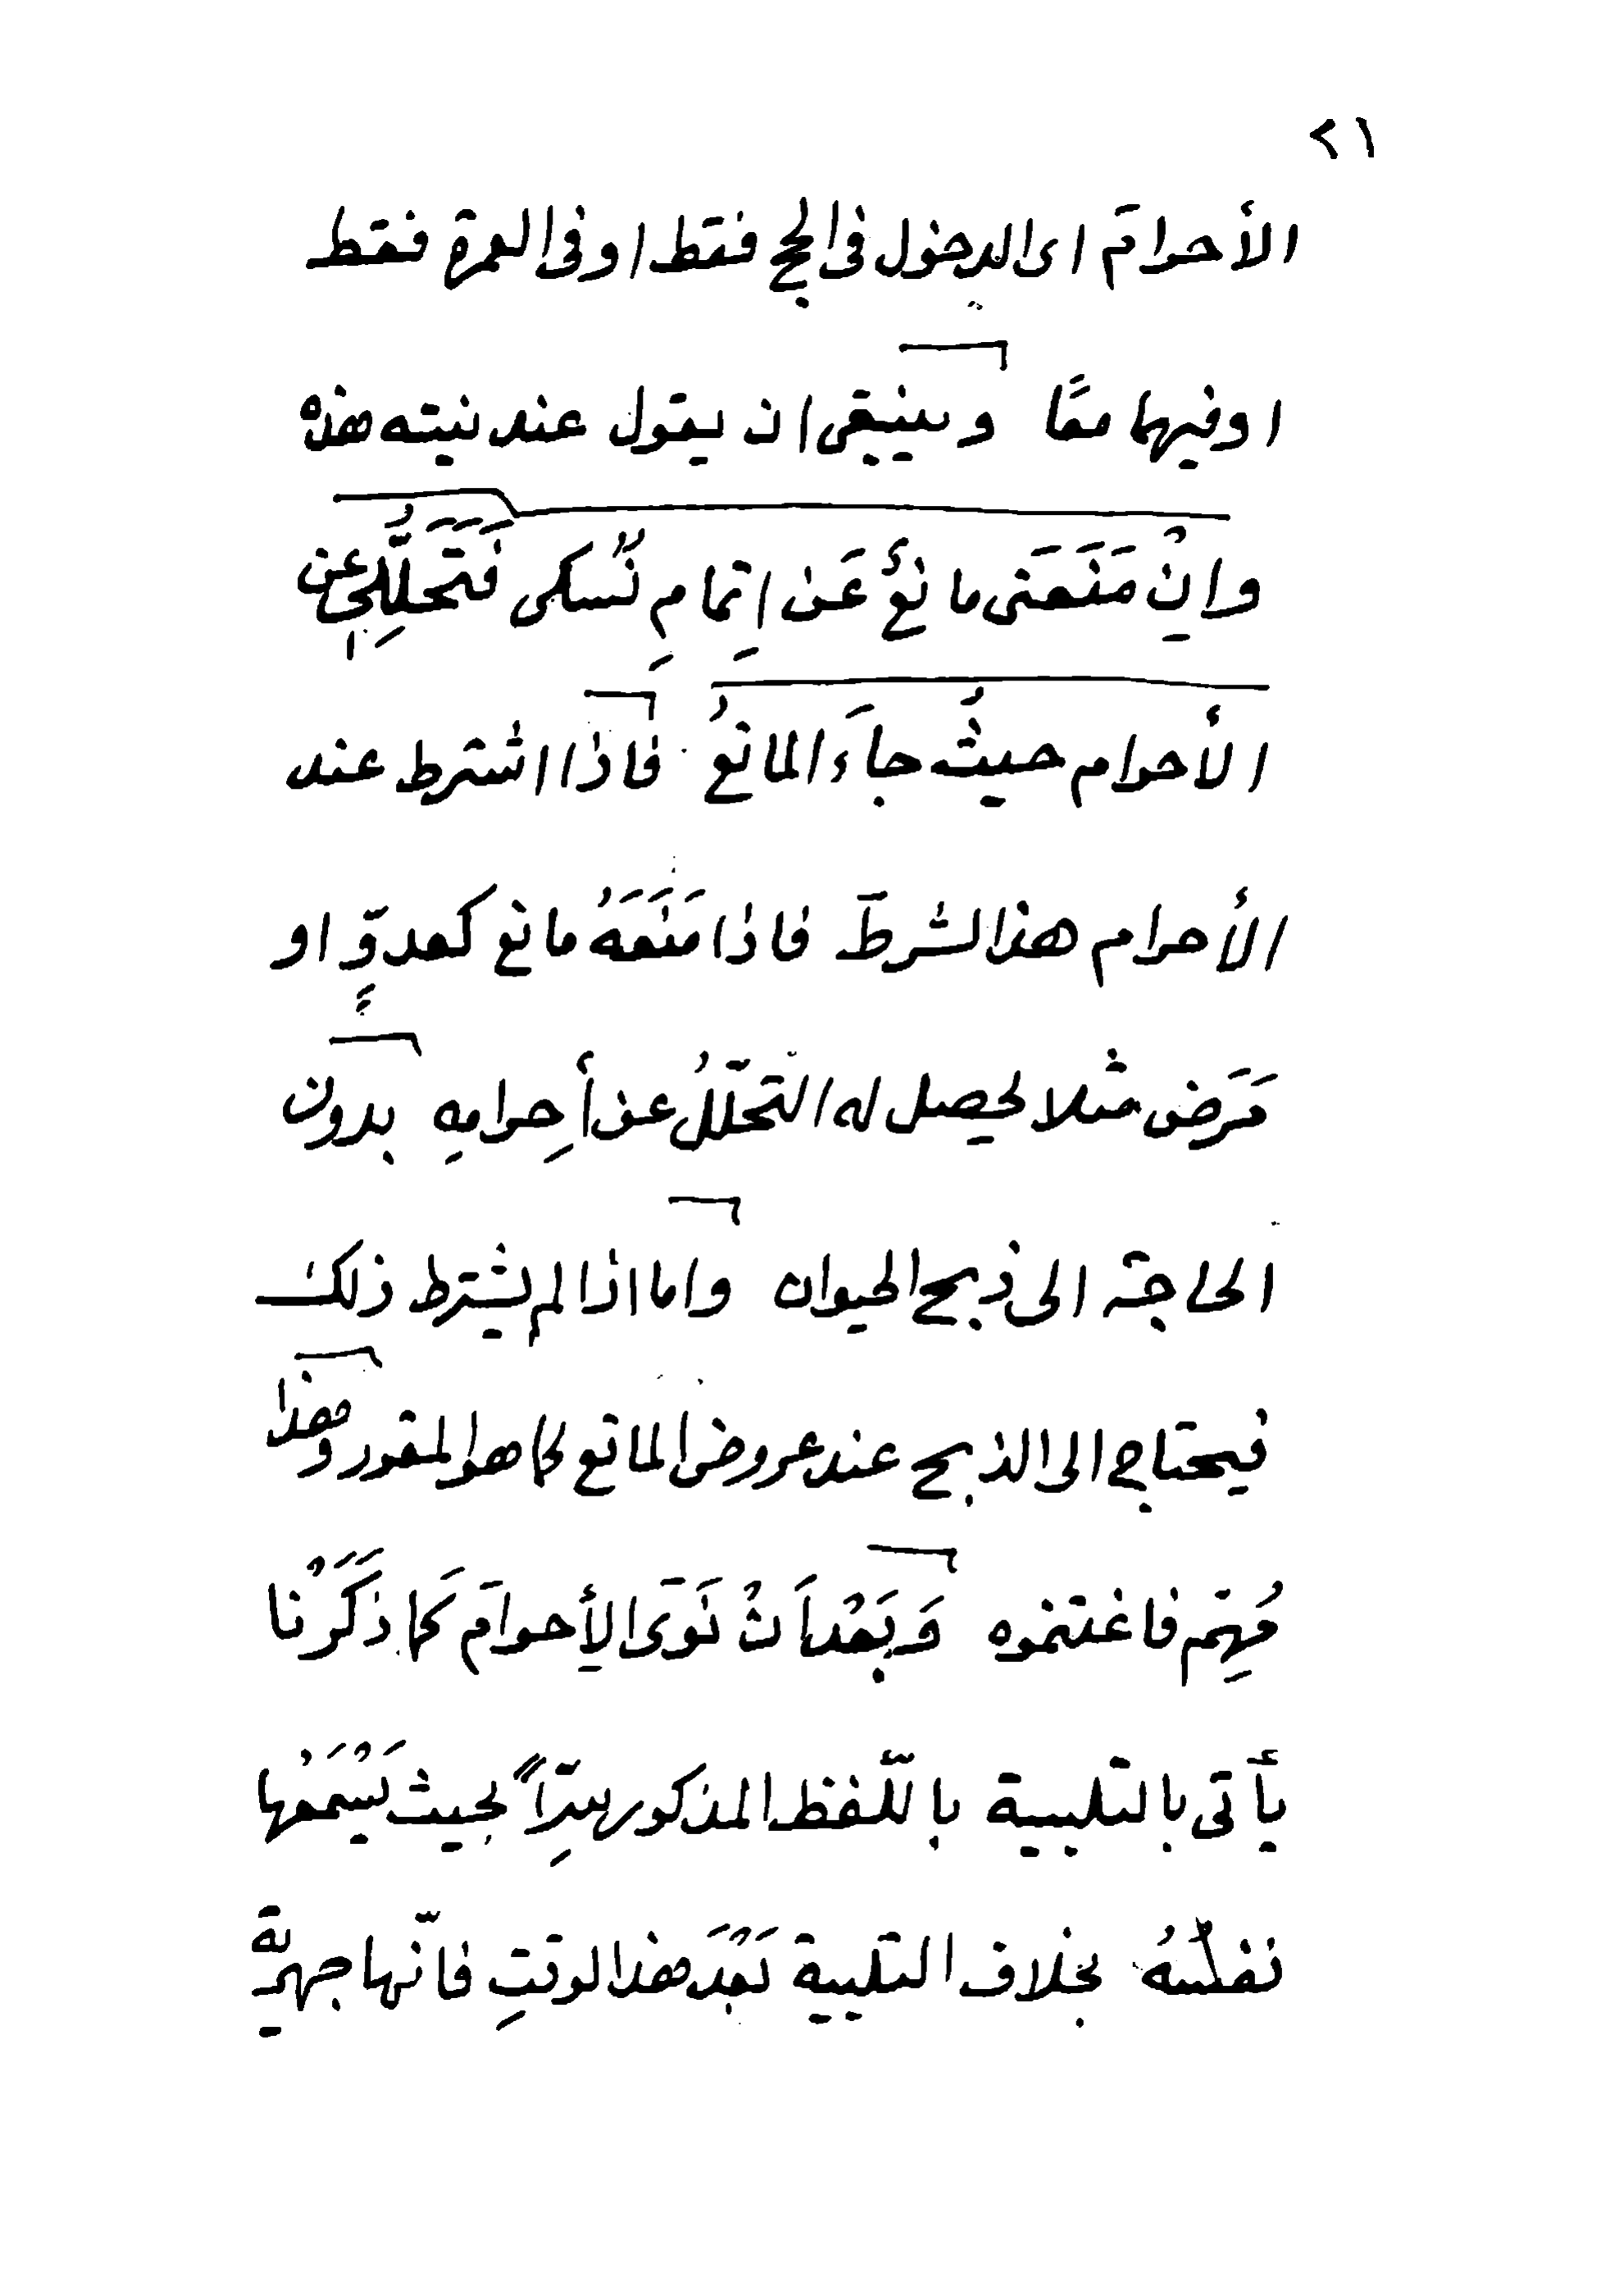 ٢١
الأحرامَ اى الدخول فى الحج فقط او فى العمرة فقط
او فيهما معًا وينبغى ان يقول عند نيته هذه
وانْ مَنَعَنى مانعٌ عَن اِتمامِ نُسكى فَتَحَلُّلِى عن
الأحرام حيثُ جاءَ المانعُ فاذا اشترط عند
الأحرام هذا الشرطَ فاذا مَنَعَهُ مانع كعدوٍّ او
مَرَض مثلا يحصل له التحلّلُ عن أِحرامِهِ بدون
الحاجة الى ذبح الحيوان واما اذا لم يشترط ذلك
فيحتاج الى الذبح عند عروض المانع كما هو المقرر وهذا
مُهِمّ فاغتنموه وَبَعْدَ اَنْ نَوَى الأِحرامَ كَما ذَكَرْنا
يأتى بالتلبية باللّفظ المذكور سِرّاً بحيث يَسْمَعُها
نفسُهُ بخلاف التلبية بَعْدَ هذا الوقتِ فانّها جهريّة